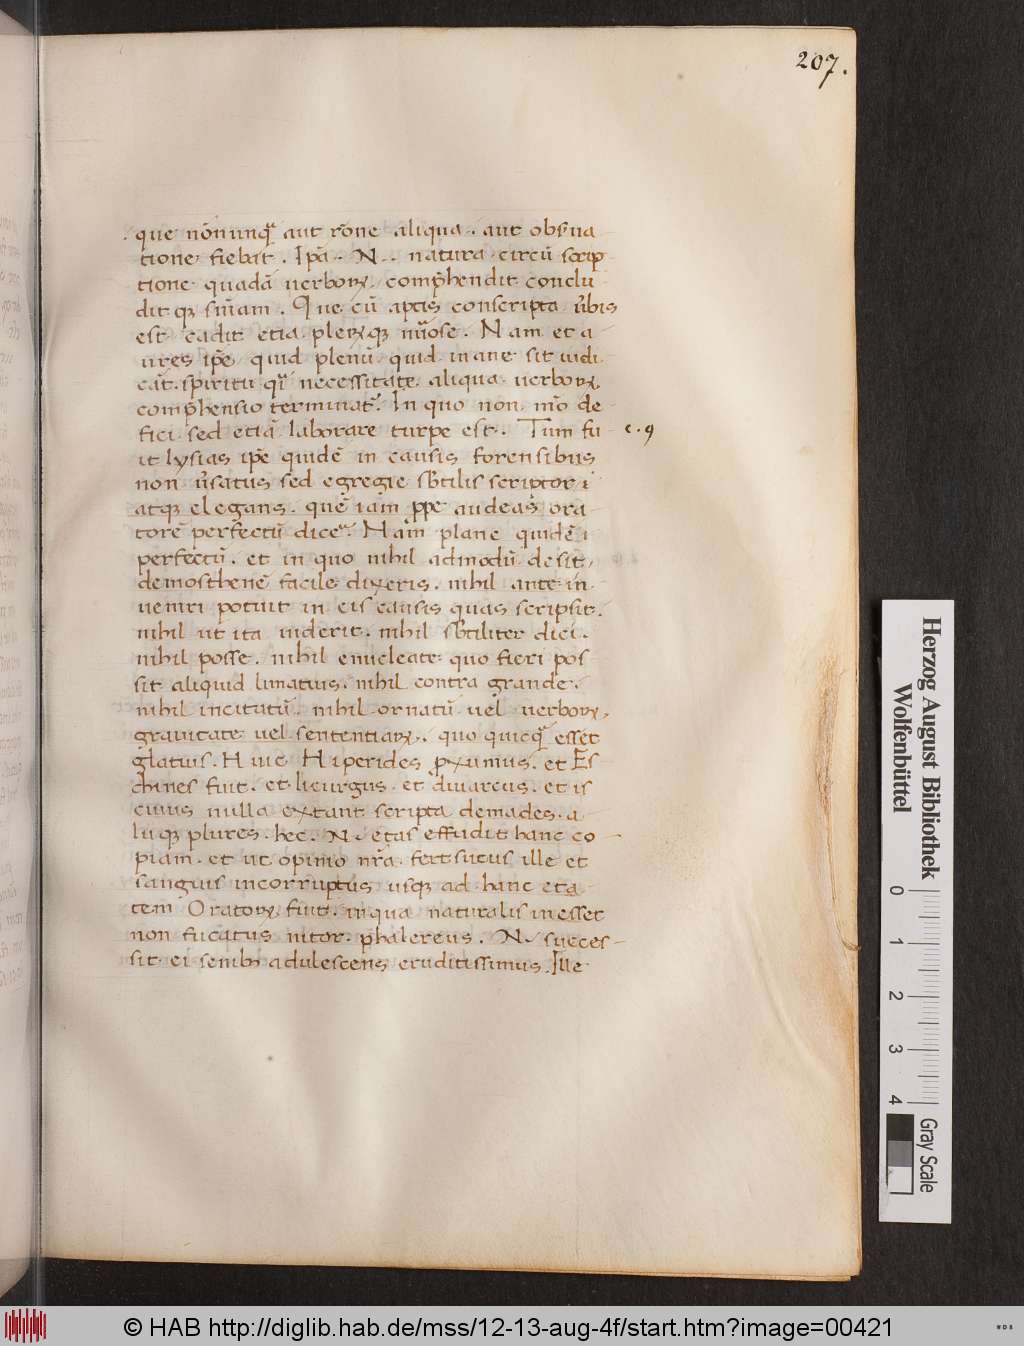 207.
que nōnunq̄ aut rōne aliqua. aut obs̄ua
tione fiebat. Ip̄a. N. natura circū scrip
tione quadā uerboꝝ comp̄hendit conclu
ditqꝫ sn̄iam. Que cū aptis conscripta ūbis
est cadit etia plerūqꝫ nūose. Nam et a
ures ip̄e quid plenū quid inane sit iudi
cāt. spiritu q̄i necessitate aliqua uerboꝝ
comp̄hensio terminat᷑. In quo non mō de
fici sed etiā laborare turpe est. Tum fu
c. 9
it lysias ip̄e quidē in causis forensibus
non ūsatus sed egregie sb̄tilis scriptor
atqꝫ elegans. quē iam ꝓpe audeas ora
torē perfectū dice᷑. Nam plane quidē
perfectū. et in quo nihil admodū desit
demosthenē facile dixeris. nihil ante in
ueniri potuit in eis causis quas scripsit.
nihil ut ita uiderit. nihil sb̄tiliter dici.
nihil posse. nihil enucleate quo fieri pos
sit aliquid limatius. nihil contra grande.
nihil incitatū. nihil ornatū uel uerboꝝ
grauitate uel sententiaꝝ. quo quicq̄ esset
elatius. Huic Hiperides ꝓximus. et Es
chines fuit. et licurgus et dinarcus. et is
cuius nulla extant scripta demades. a
liiqꝫ plures. hec. N. etas effudit hanc co
piam. et ut opinio nr̄a fert sucus ille et
sanguis incorruptus usqꝫ ad hanc eta
tem Oratoꝝ fuit. in qua naturalis inesset
non fucatus nitor. phalereus. N. succes
sit ei senibꝫ adulescens eruditissimus. Ille
Herzog August Bibliothek
Wolfenbüttel
0 1 2 3 4
Gray Scale
© HAB http://diglib.hab.de/mss/12-13-aug-4f/start.htm?image=00421